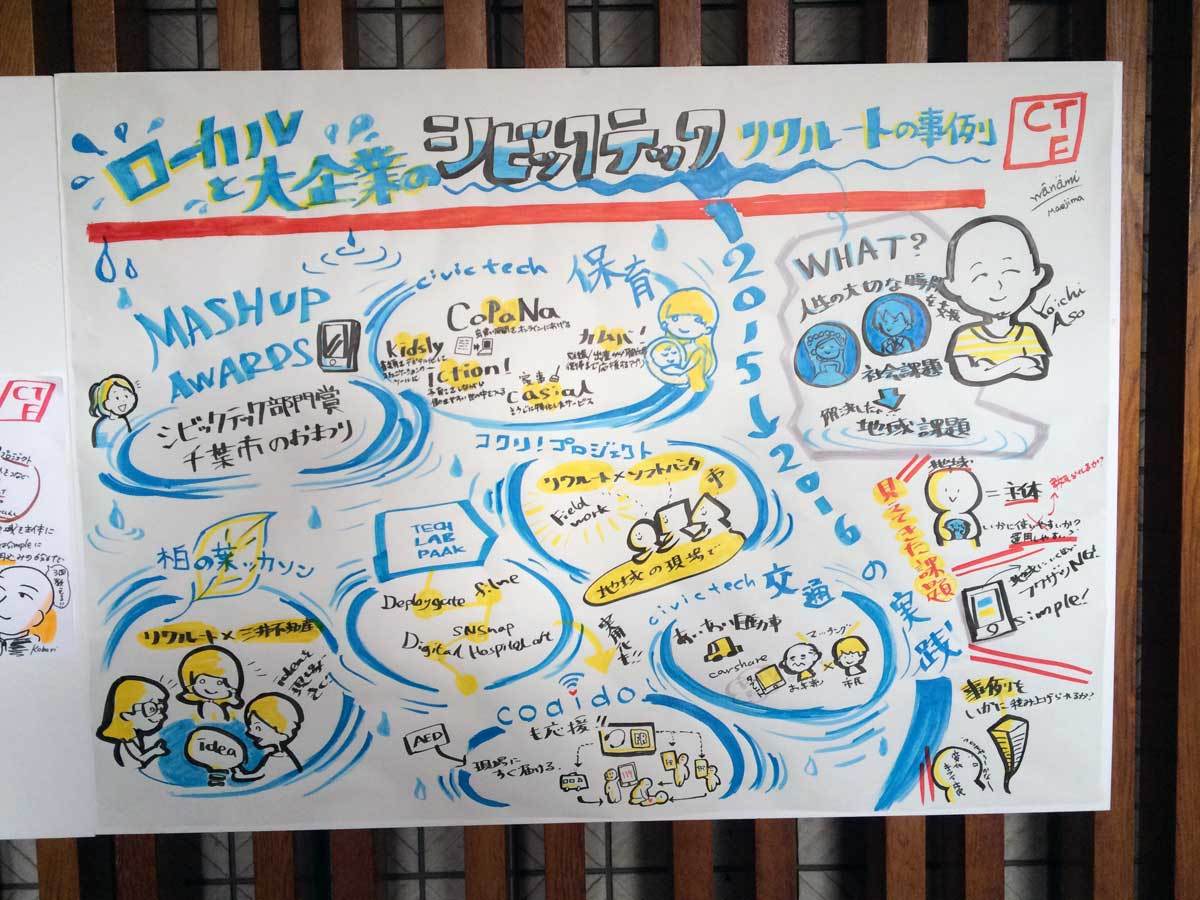 ローカルと大企業のシビックテック リクルートの事例
CTE
wanami
Maejima
2015→2016の実践
WHAT?
人生の大切な瞬間を支援
社会課題
解決したい!!
地域課題
Koichi
Aso
MASHUP
AWARDS
シビックテック部門賞
千葉市のおまつり
civictech 保育
CoPaNa
Kidsly
カムバ!
iction!
家事
casial
そうじに特化したサービス
コクリ!プロジェクト
リクルート×ソフトバンク
Field
work
地域の現場で
TECH
LAB
PAAK
Deploygate
SNSnap
Digital HospiteLoft
柏の葉ッカソン
リクルート×三井不動産
idea
civictech 交通
あいあい自動車
carshare
マッチング
お年寄
市民
coaido
も応援
AED
現場に
すぐ届ける
見えてきた課題
地域
=主体
いかに使いやすいか?
運用しやすい?
フクザツNG!
simple!
事例を
いかに積み上げられるか?
CTE
simpleに
Kobori